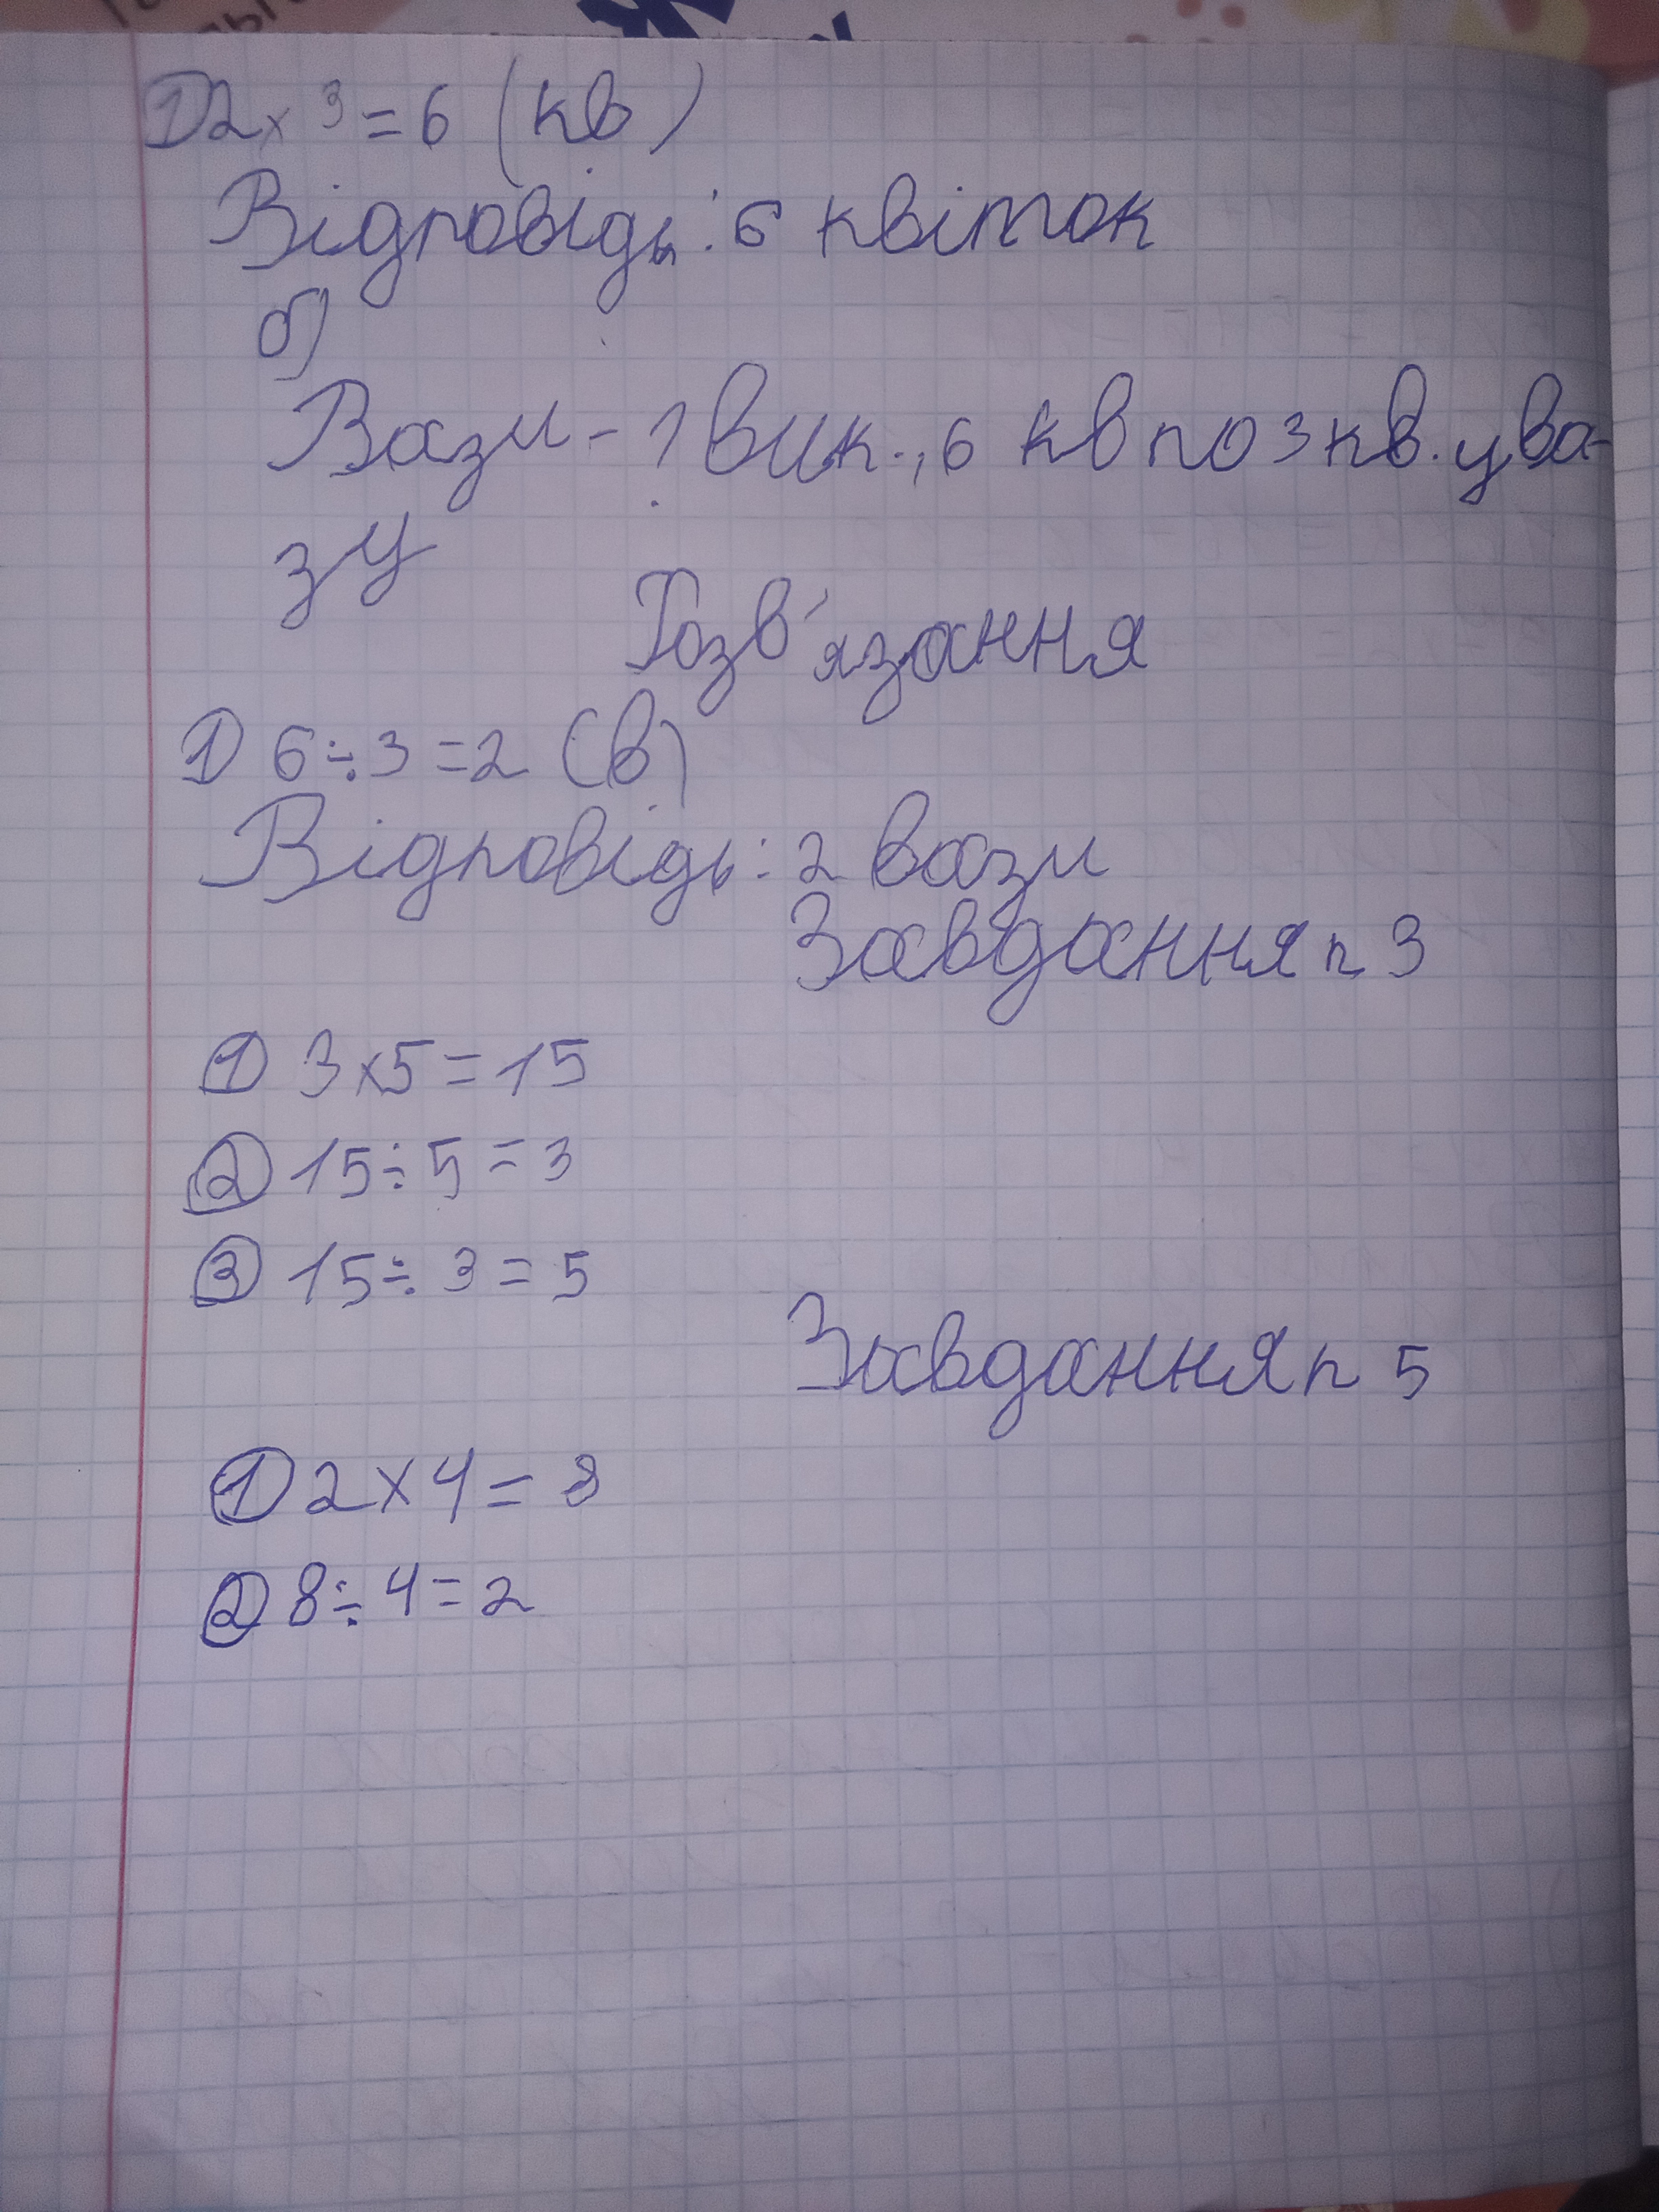 1) 2 × 3 = 6 (кв)
Відповідь: 6 квіток
б)
Вази - ? вик., 6 кв по 3 кв. у ва-
зу
Розв'язання
1) 6 ÷ 3 = 2 (в)
Відповідь: 2 вази
Завдання n 3
1) 3 × 5 = 15
2) 15 ÷ 5 = 3
3) 15 ÷ 3 = 5
Завдання n 5
1) 2 × 4 = 8
2) 8 ÷ 4 = 2